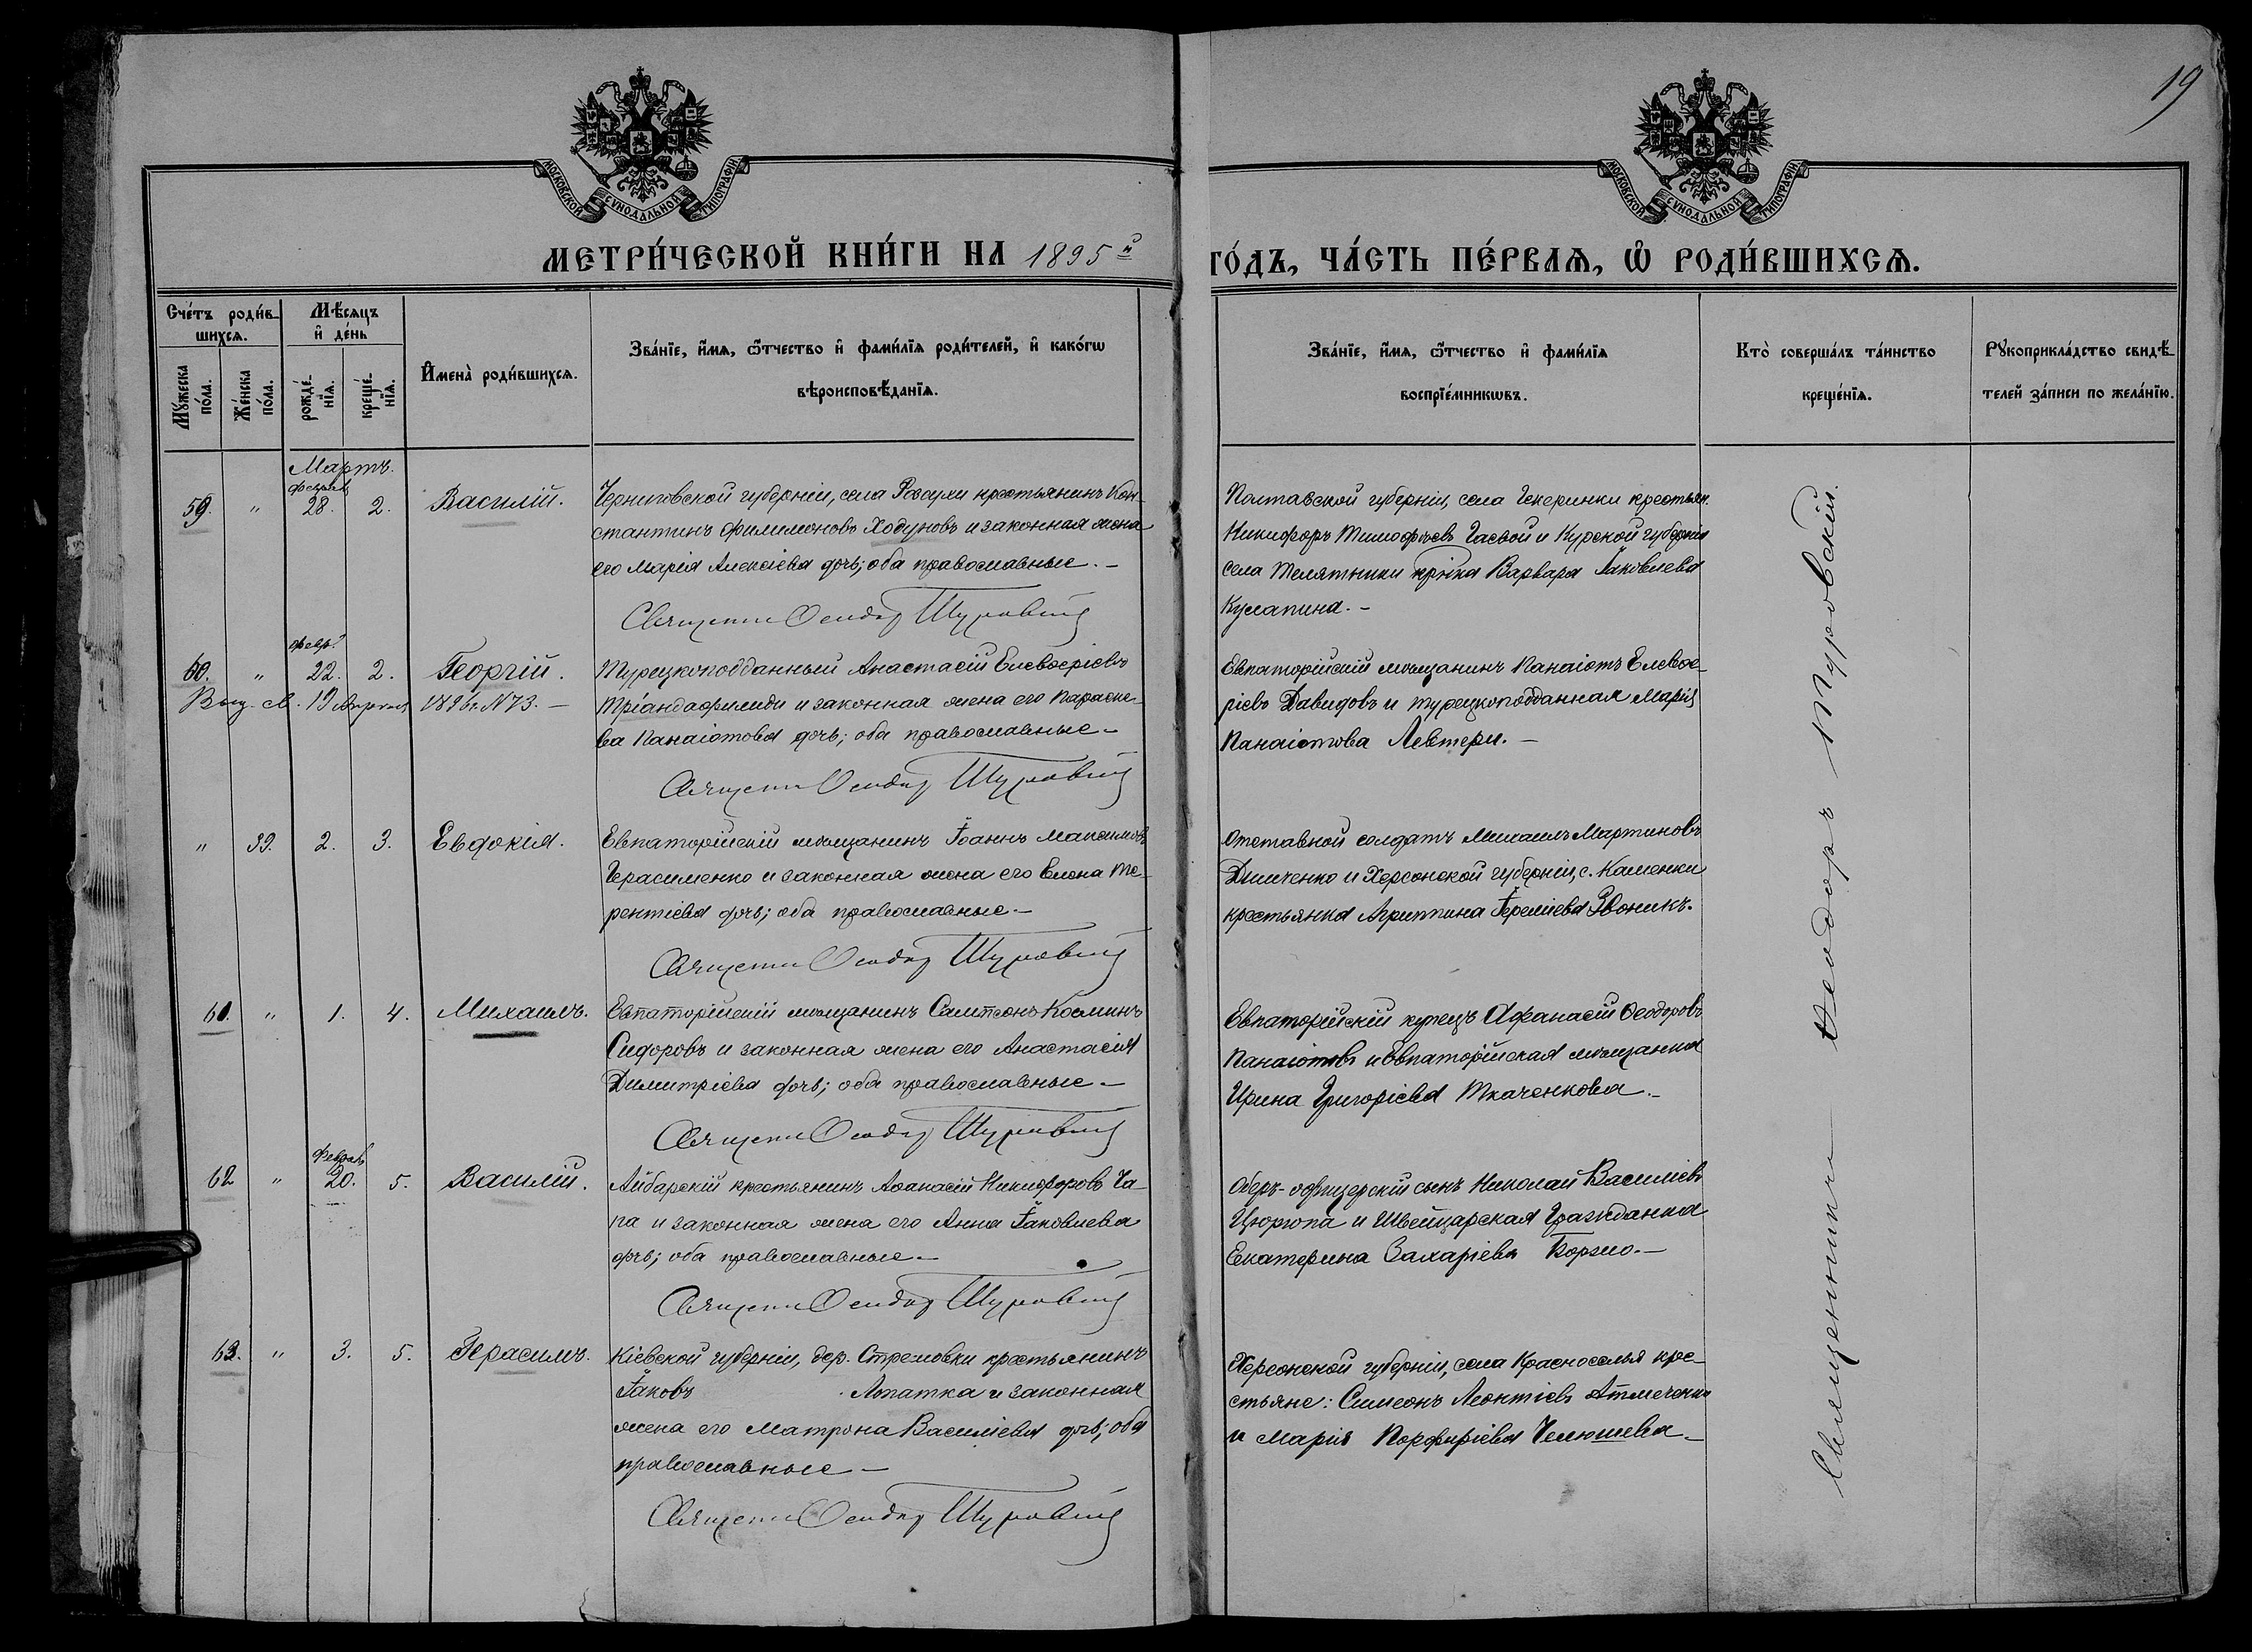 19
МОСКОВСКОЙ СѴНОДАЛЬНОЙ ТИПОГРАФІИ
МОСКОВСКОЙ СѴНОДАЛЬНОЙ ТИПОГРАФІИ
МЕТРИ́ЧЕСКОЙ КНИ́ГИ НА 1895й
ГО́ДЪ, ЧА́СТЬ ПЕ́РВАѦ, Ѽ РОДИ́ВШИХСѦ.
Сче́тъ роди́в-
шихсѧ.
Мѣ́сѧцъ
и҆ де́нь
Мꙋ́жеска
по́ла.
Же́нска
по́ла.
рожде́-
нїѧ.
креще́-
нїѧ.
И҆мена̀ роди́вшихсѧ.
Зва́нїе, и҆́мѧ, ѻ҆́тчество и҆ фами́лїѧ роди́телей, и҆ како́гѡ
вѣроисповѣ́данїѧ.
Зва́нїе, и҆́мѧ, ѻ҆́тчество и҆ фами́лїѧ
воспрїе́мникѡвъ.
Кто̀ соверша́лъ та́инство
креще́нїѧ.
Рꙋкоприкла́дство свидѣ́-
телей за́писи по жела́нїю.
Мартъ.
февраля
59. " 28. 2. Василій.
Черниговской губерніи, села Рогсухи крестьянинъ Кон-
стантинъ Филимоновъ Ходуновъ и законная жена
его Марія Алексіева дочь; оба православные. –
Священн Ѳеодор Туровскій
Полтавской губерніи, села Чекеринки крестьян.
Никифоръ Тимофѣевъ Гаевой и Курской губерніи
села Телятники кр֊нка Варвара Іаковлева
Кулапина. –
февр.
60. " 22. 2. Георгій.
Выд. св. 19 Апреля 1896 г. N 73. –
Турецкоподданный Анастасій Елевѳеріевъ
Тріандафилиди и законная жена его Параске-
ва Панаіотова дочь; оба православные –
Священн Ѳеодор Туровскій
Евпаторійскій мѣщанинъ Панаіотъ Елевѳе-
ріевъ Давидовъ и турецкоподданная Марія
Панаіотова Левтери. –
" 39. 2. 3. Евдокія.
Евпаторійскій мѣщанинъ Іоаннъ Максимовъ
Герасименко и законная жена его Елена Те-
рентіева дочь; оба православные –
Священн Ѳеодор Туровскій
Отставной солдатъ Михаилъ Мартиновъ
Димченко и Херсонской губерніи, с. Каменки
крестьянка Агриппина Іереміева Звоникъ.
61. " 1. 4. Михаилъ.
Евпаторійскій мѣщанинъ Сампсонъ Косминъ
Сидоровъ и законная жена его Анастасія
Димитріева дочь; оба православные –
Священн Ѳеодор Туровскій
Евпаторійскій купецъ Афанасій Ѳеодоровъ
Панаіотовъ и Евпаторійская мѣщанка
Ирина Григоріева Ткаченкова. –
Февраля
62 " 20. 5. Василій.
Айбарскій крестьянинъ Аѳанасій Никифоровъ Ча-
па и законная жена его Анна Іаковлева
дочь; оба православные –
Священн Ѳеодор Туровскій
Оберъ-офицерскій сынъ Николай Василіевъ
Цюрюпа и Швейцарская Гражданка
Екатерина Захаріева Борзио. –
63. " 3. 5. Герасимъ.
Кіевской губерніи, дер. Стремовки крестьянинъ
Іаковъ Лопатка и законная
жена его Матрона Василіева дочь; оба
православные –
Священн Ѳеодор Туровскій
Херсонской губерніи, села Красноселья кре-
стьяне: Симеонъ Леонтіевъ
и Марія Порфиріева Челюшева –
Священникъ Ѳеодоръ Туровскій.